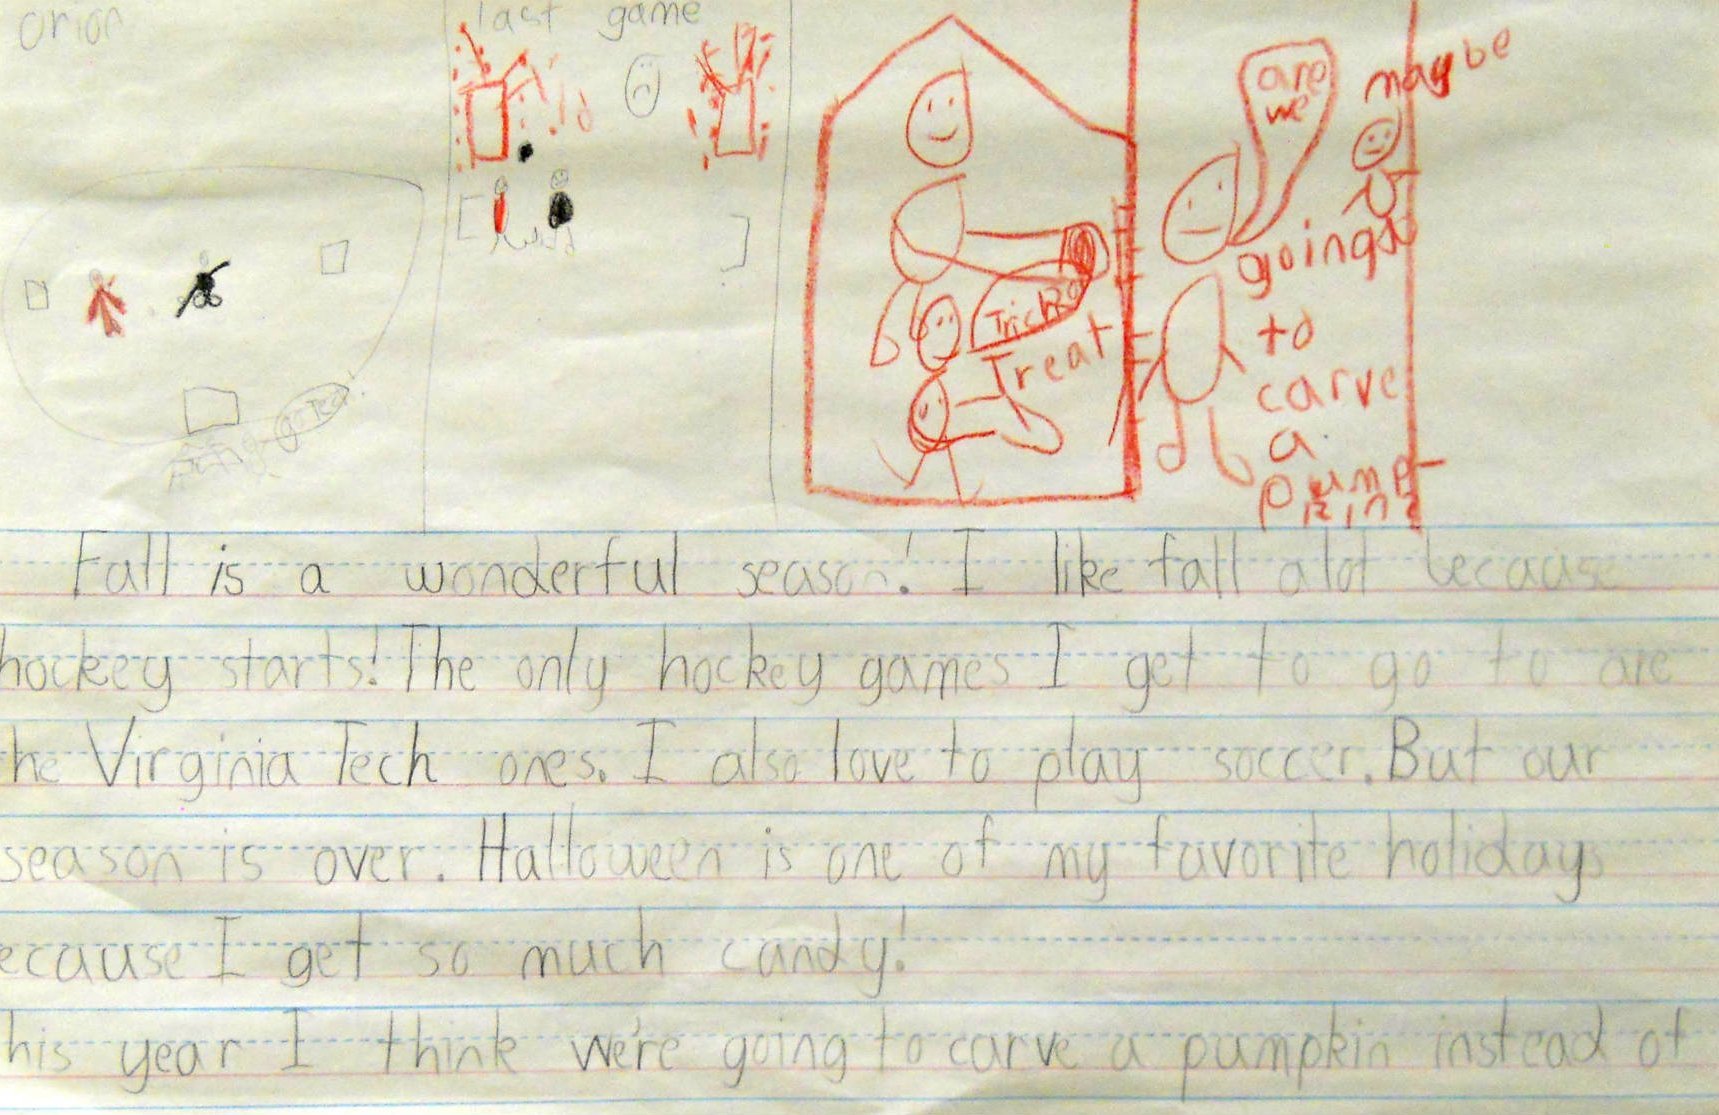 orion
last game
are
we
maybe
going
to
carve
a
pump-
kin
Trick or
Treat
go Tech!
Fall is a wonderful season! I like fall alot because
hockey starts! The only hockey games I get to go to are
he Virginia Tech ones. I also love to play soccer. But our
season is over. Halloween is one of my favorite holidays
ecause I get so much candy!
his year I think we're going to carve a pumpkin instead of